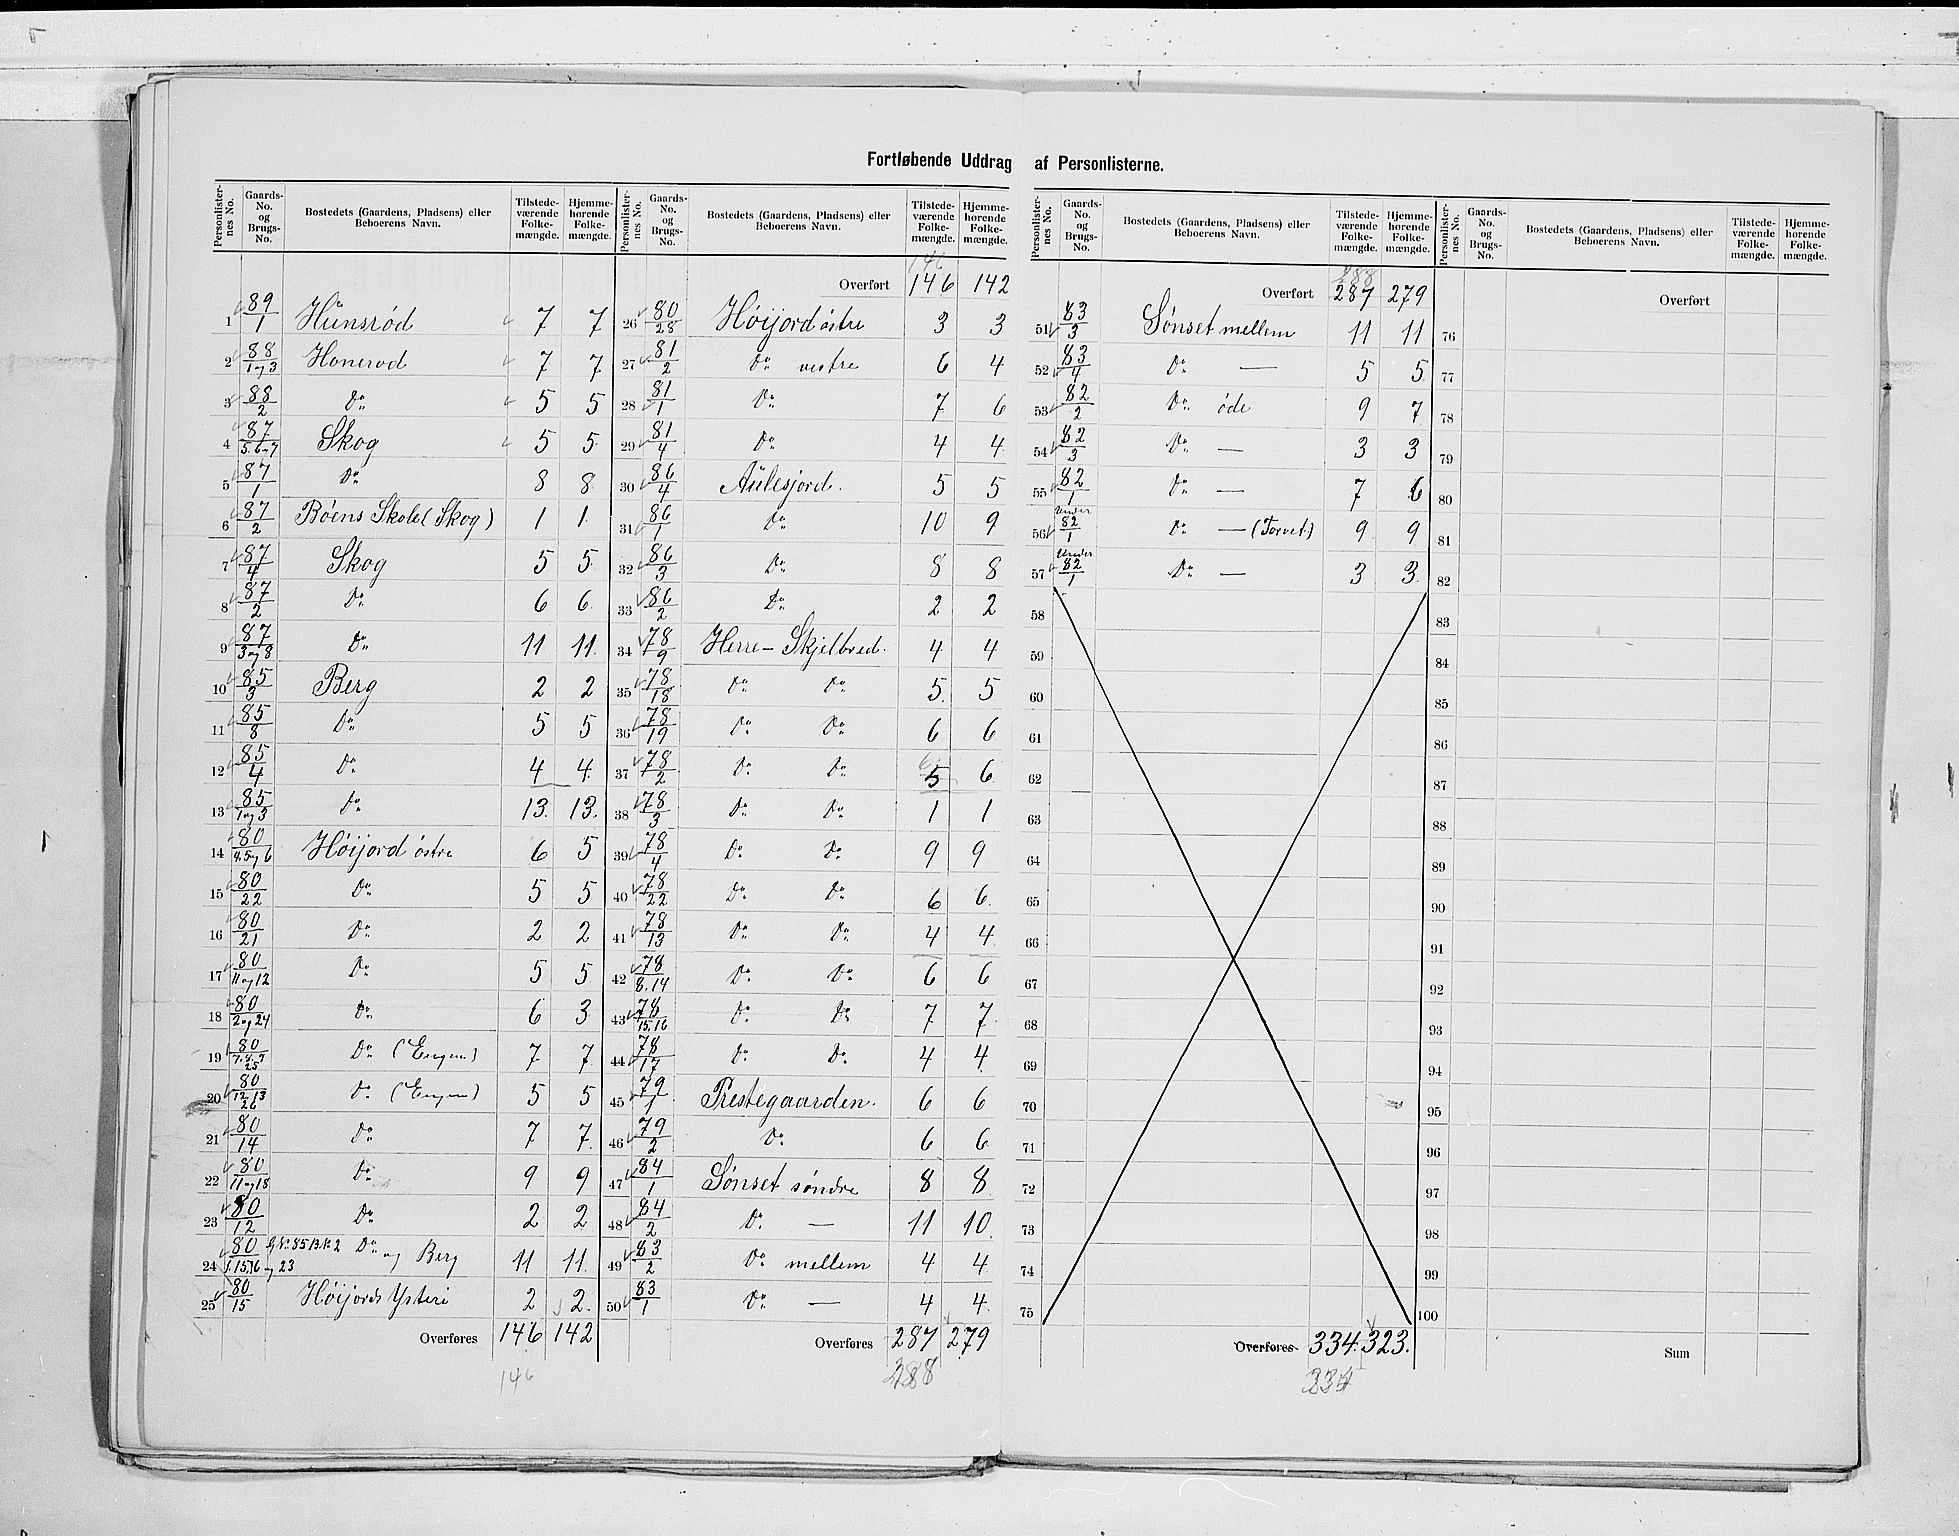 Fortløbende Uddrag af Personlisterne.
Personlisternes No. | Gaards-No. og Brugs-No. | Bostedets (Gaardens, Pladsens) eller Beboerens Navn. | Tilstedeværende Folkemængde. | Hjemmehørende Folkemængde.
1 89/1 Hünsrød 7 7
2 88/1 og 3 Honerod 7 7
3 88/2 Do 5 5
4 87/5.6 og 7 Skog 5 5
5 87/1 Do 8 8
6 87/2 Böens Skole (Skog) 1 1
7 87/4 Skog 5 5
8 87/2 Do 6 6
9 87/3 og 8 Do 11 11
10 85/3 Berg 2 2
11 85/8 Do 5 5
12 85/4 Do 4 4
13 85/1 og 3 Do 13 13
14 80/4.5 og 6 Høijord östre 6 5
15 80/22 Do 5 5
16 80/21 Do 2 2
17 80/11 og 12 Do 5 5
18 80/2 og 24 Do 6 3
19 80/7.8.9 25 Do (Engen) 7 7
20 80/12.13 26 Do (Engen) 5 5
21 80/14 Do 7 7
22 80/11 og 18 Do 9 9
23 80/12 Do 2 2
24 80/1.15.16 og 23 G.No 85 B.No 2 Do og Berg 11 11
25 80/15 Høijords Ysteri 2 2
Overføres 146 142
146
Personlisternes No. | Gaards-No. og Brugs-No. | Bostedets (Gaardens, Pladsens) eller Beboerens Navn. | Tilstedeværende Folkemængde. | Hjemmehørende Folkemængde.
146
Overført 146 142
26 80/28 Høijord östre 3 3
27 81/2 Do vestre 6 4
28 81/1 Do 7 6
29 81/4 Do 4 4
30 86/4 Aülesjord. 5 5
31 86/1 Do 10 9
32 86/3 Do 8 8
33 86/2 Do 2 2
34 78/9 Herre-Skjelbred. 4 4
35 78/18 Do Do 5 5
36 78/19 Do Do 6 6
37 78/2 Do Do 5 6
38 78/3 Do Do 1 1
39 78/4 Do Do 9 9
40 78/22 Do Do 6 6
41 78/13 Do Do 4 4
42 78/8.14 Do Do 6 6
43 78/15.16 Do Do 7 7
44 78/17 Do Do 4 4
45 79/1 Prestegaarden. 6 6
46 79/2 Do 6 6
47 84/1 Sönset söndre 8 8
48 84/2 Do — 11 10
49 83/2 Do mellem 4 4
50 83/1 Do — 4 4
Overføres 287 279
288
Personlisternes No. | Gaards-No. og Brugs-No. | Bostedets (Gaardens, Pladsens) eller Beboerens Navn. | Tilstedeværende Folkemængde. | Hjemmehørende Folkemængde.
288
Overført 287 279
51 83/3 Sönset mellem 11 11
52 83/4 Do — 5 5
53 82/2 Do öde 9 7
54 82/3 Do — 3 3
55 82/1 Do — 7 6
56 Under 82/1 Do — (Torvet) 9 9
57 Under 82/1 Do — 3 3
58
59
60
61
62
63
64
65
66
67
68
69
70
71
72
73
74
75
Overføres 334. 323.
334
Personlisternes No. | Gaards-No. og Brugs-No. | Bostedets (Gaardens, Pladsens) eller Beboerens Navn. | Tilstedeværende Folkemængde. | Hjemmehørende Folkemængde.
Overført
76
77
78
79
80
81
82
83
84
85
86
87
88
89
90
91
92
93
94
95
96
97
98
99
100
Sum